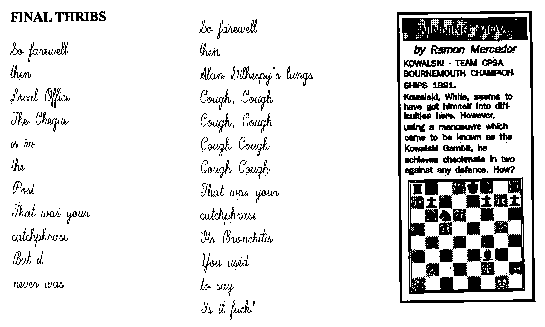 FINAL THRIBS
So farewell
then
Local Office
The Cheque
is in
the
Post
That was your
catchphrase
But it
never was
So farewell
then
Alan Gillespy's lungs
Cough, Cough
Cough, Cough
Cough Cough
Cough Cough
That was your
catchphrase
It's Bronchitis
You used
to say
Is it fuck!
by Ramon Mercador
KOWALSKI - TEAM CPSA
BOURNEMOUTH CHAMPION-
SHIPS 1991.
Kowalski, White, seems to
have got himself into diff-
iculties here. However,
using a manoeuvre which
came to be known as the
Kowalski Gambit, he
achieves checkmate in two
against any defence. How?